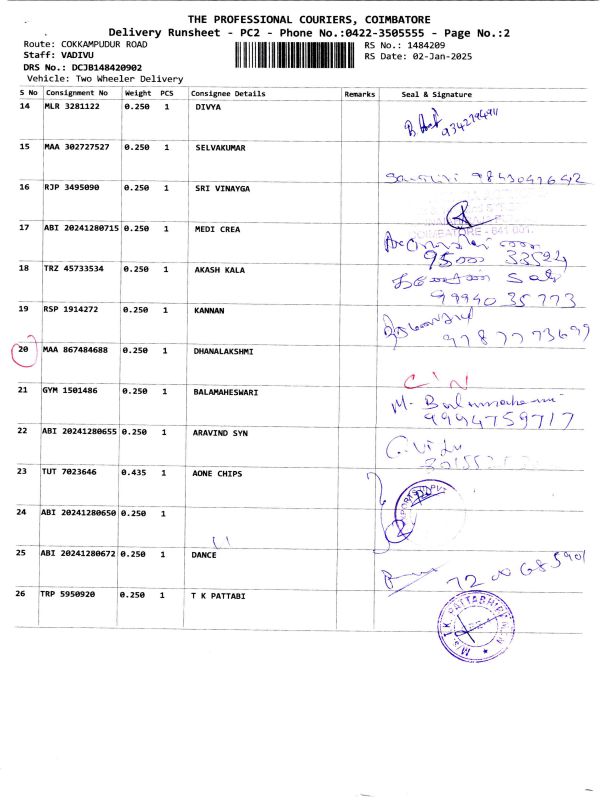 THE PROFESSIONAL COURIERS, COIMBATORE
Delivery Runsheet - PC2 - Phone No.:0422-3505555 - Page No.:2
Route: COKKAMPUDUR ROAD RS No.: 1484209
Staff: VADIVU RS Date: 02-Jan-2025
DRS No.: DCJB148420902
Vehicle: Two Wheeler Delivery
S No Consignment No Weight PCS Consignee Details Remarks Seal & Signature
14 MLR 3281122 0.250 1 DIVYA
9342794911
15 MAA 302727527 0.250 1 SELVAKUMAR
9843041642
16 RJP 3495090 0.250 1 SRI VINAYGA
COIMBATORE - 641 001.
17 ABI 20241280715 0.250 1 MEDI CREA
18 TRZ 45733534 0.250 1 AKASH KALA
99940 35773
19 RSP 1914272 0.250 1 KANNAN
20 MAA 867484688 0.250 1 DHANALAKSHMI
C'N
21 GYM 1501486 0.250 1 BALAMAHESWARI
M. Balamaheswari
9994759717
22 ABI 20241280655 0.250 1 ARAVIND SYN
23 TUT 7023646 0.435 1 AONE CHIPS
24 ABI 20241280650 0.250 1
25 ABI 20241280672 0.250 1 DANCE
72 00 685901
26 TRP 5950920 0.250 1 T K PATTABI